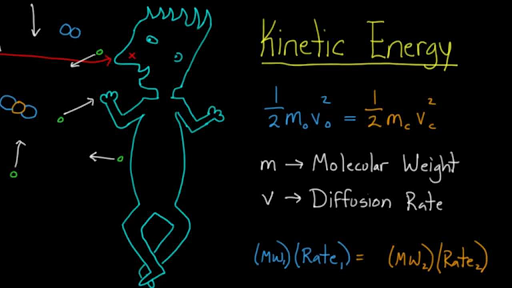 Kinetic Energy
1/2 m₀v₀² = 1/2 m_c v_c²
m → Molecular Weight
v → Diffusion Rate
(MW₁)(Rate₁) = (MW₂)(Rate₂)